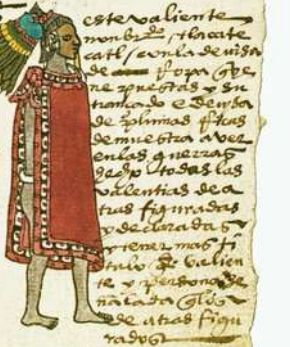 este valiente
nonbrado tlacate
catl / con la devisa
de ropa que tie
ne puestas y su
trançado e devisa
de plumas ricas
demuestra aver
en las guerras
hecho todas las
valentias de a
tras figuradas
y declaradas
y tener mas ti
tulo de valien
te y persona se
ñalada que los
de atras figu
rados